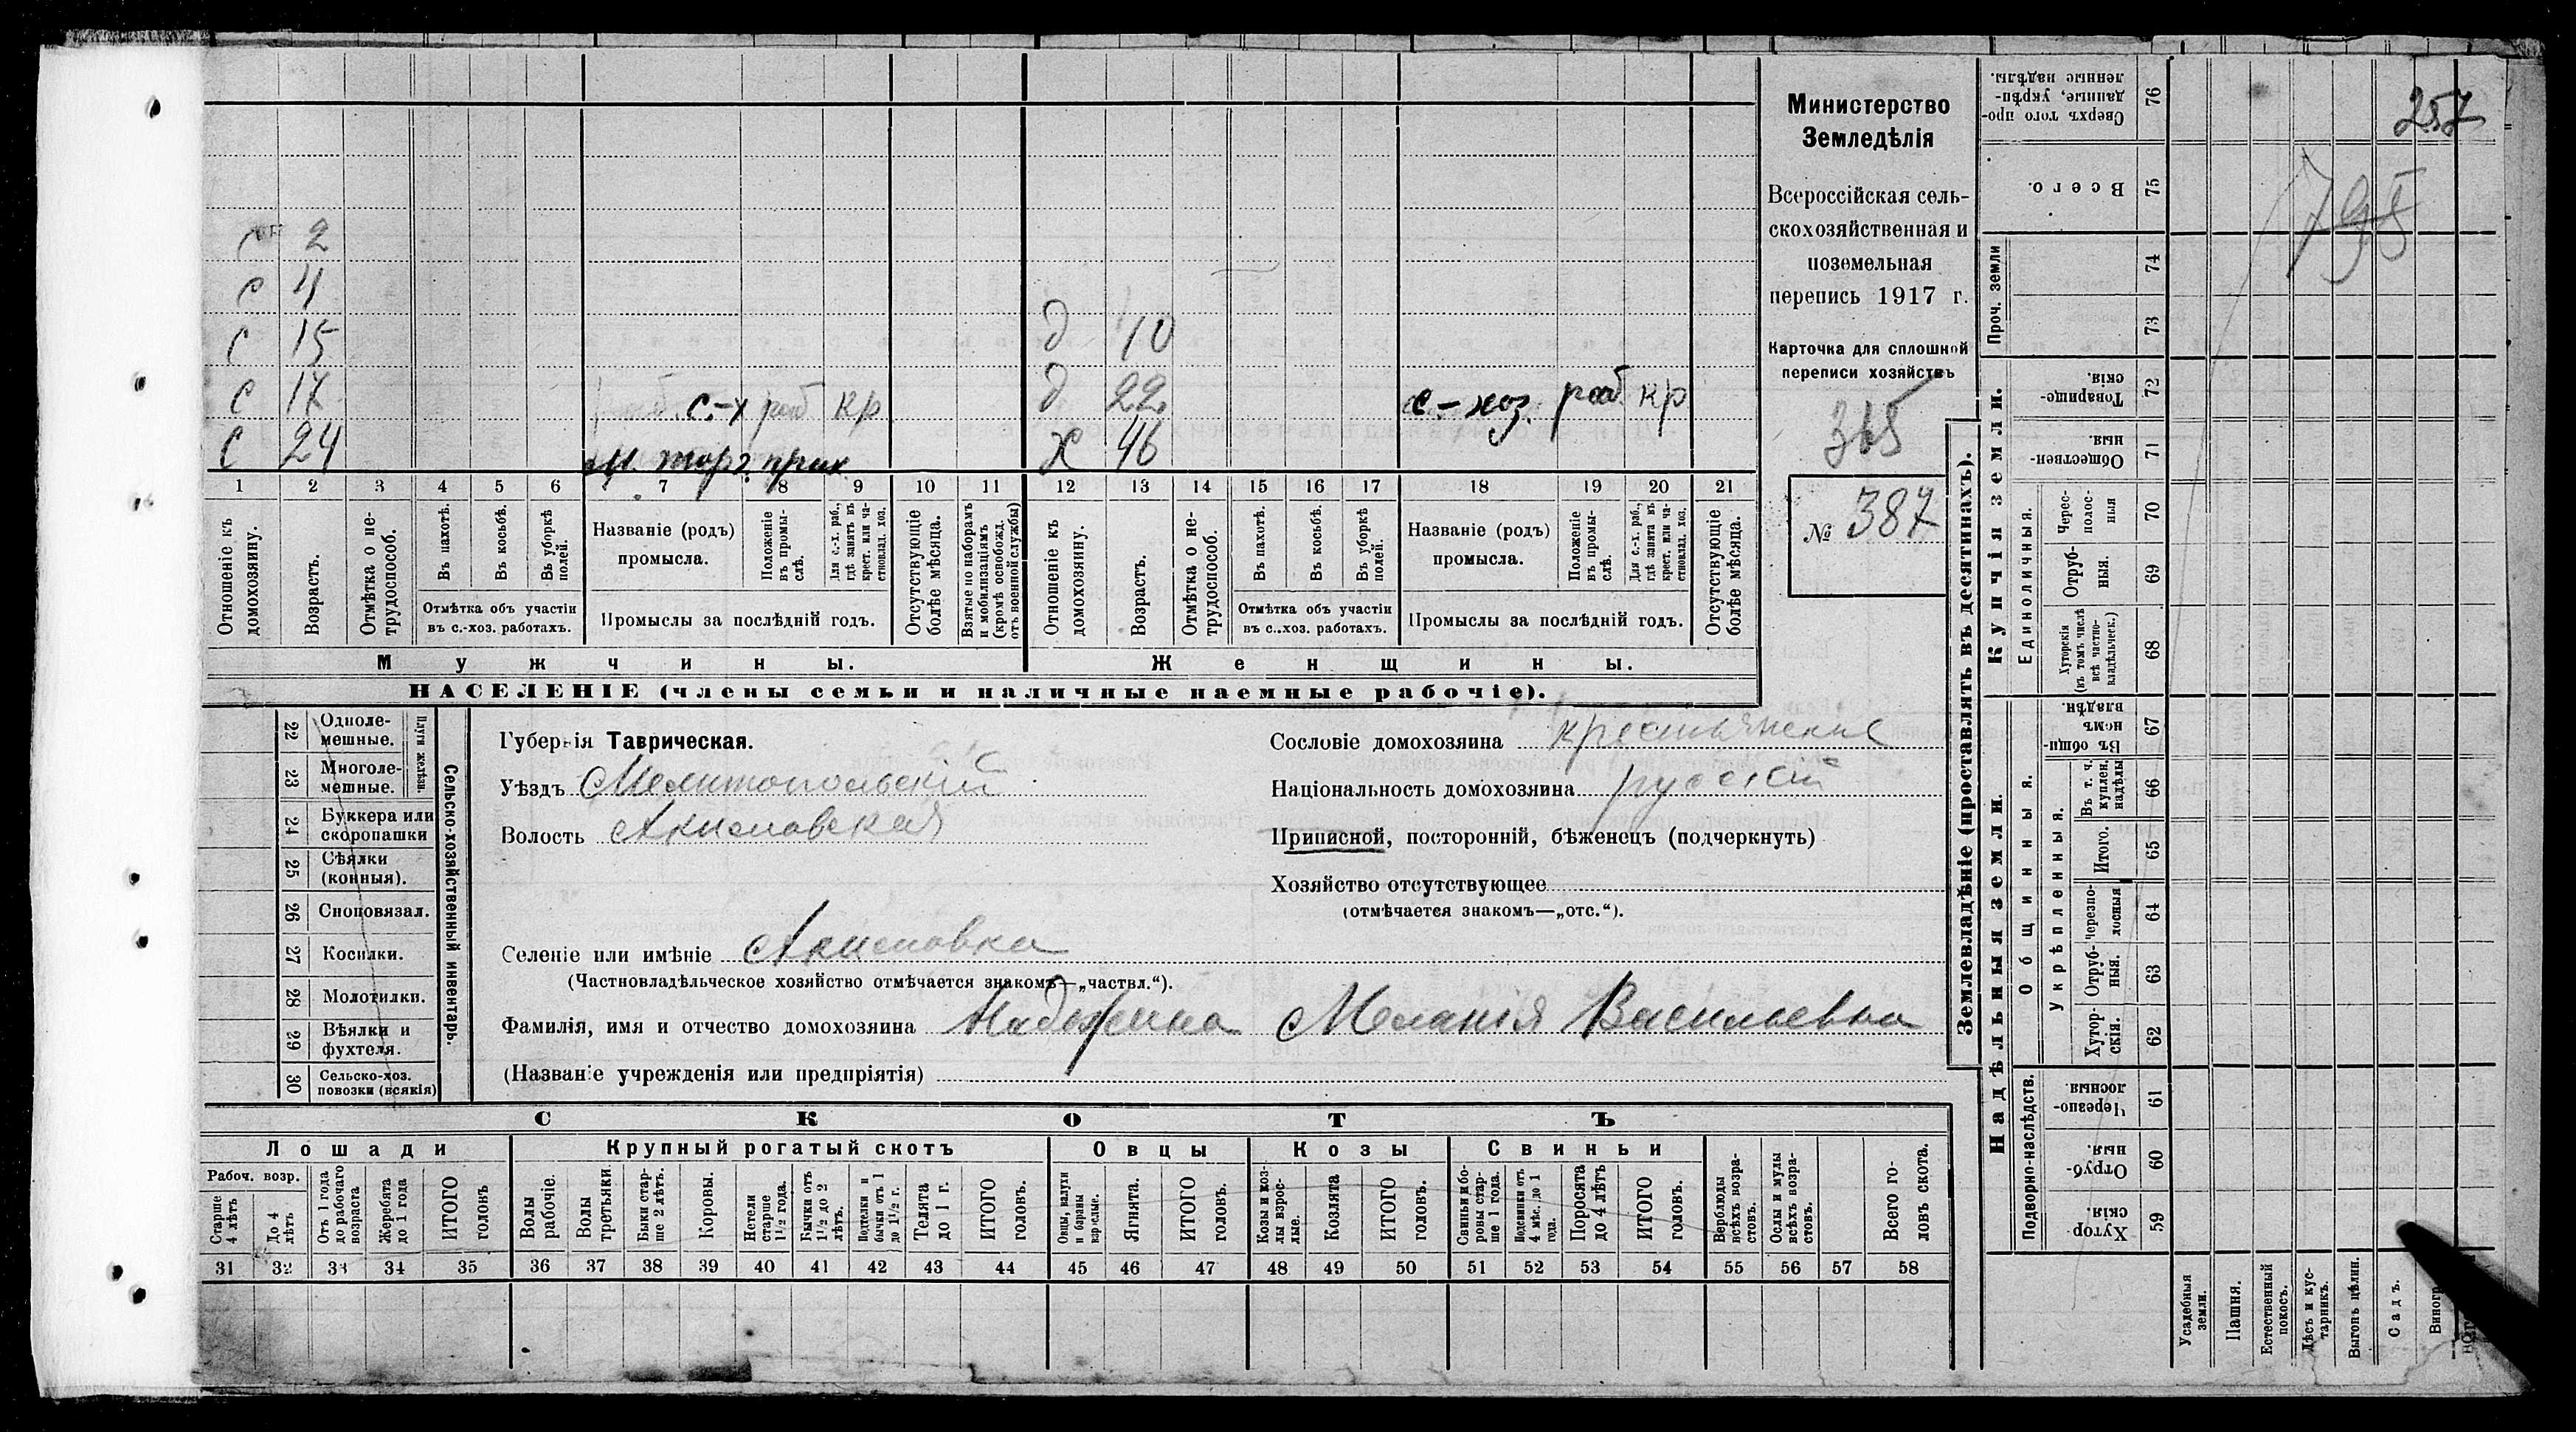 257
795
Министерство
Земледѣлія
Всероссійская сель-
скохозяйственная и
поземельная
перепись 1917 г.
Карточка для сплошной
переписи хозяйствъ
315
№ 387
с 2
с 4
с 15 д 10
с 17 с.-х раб кр д 22 с-хоз. раб кр
с 24 торг. прик ж 46
1 2 3 4 5 6 7 8 9 10 11 12 13 14 15 16 17 18 19 20 21
Отношеніе къ домохозяину.
Возрастъ.
Отмѣтка о не-трудоспособ.
Въ пахотѣ.
Въ косьбѣ.
Въ уборкѣ полей.
Отмѣтка объ участіи
въ с.-хоз. работахъ.
Названіе (родъ)
промысла.
Положеніе въ промы-слѣ.
Для с.-х. раб., гдѣ занятъ въ крест. или ча-стновлад. хоз.
Промыслы за послѣдній годъ.
Отсутствующіе болѣе мѣсяца.
Взятые по наборамъ и мобилизаціямъ (кромѣ освобожд. отъ военной службы)
Отношеніе къ домохозяину.
Возрастъ.
Отмѣтка о не-трудоспособ.
Въ пахотѣ.
Въ косьбѣ.
Въ уборкѣ полей.
Отмѣтка объ участіи
въ с.-хоз. работахъ.
Названіе (родъ)
промысла.
Положеніе въ промы-слѣ.
Для с.-х. раб., гдѣ занята въ крест. или ча-стновлад. хоз.
Промыслы за послѣдній годъ.
Отсутствующіе болѣе мѣсяца.
Мужчины. Женщины.
НАСЕЛЕНІЕ (члены семьи и наличные наемные рабочіе).
Сельско-хозяйственный инвентарь.
Плуги желѣзн.
22 Одноле-мешные.
23 Многоле-мешные.
24 Буккера или скоропашки
25 Сѣялки (конныя).
26 Сноповязал.
27 Косилки.
28 Молотилки.
29 Вѣялки и фухтеля.
30 Сельско-хоз. повозки (всякія)
Губернія Таврическая.
Уѣздъ Мелитопольскій
Волость Акимовская
Селеніе или имѣніе Акимовка
(Частновладѣльческое хозяйство отмѣчается знакомъ—„частвл.“).
Сословіе домохозяина крестьянское
Національность домохозяина русскій
Приписной, посторонній, бѣженецъ (подчеркнуть)
Хозяйство отсутствующее
(отмѣчается знакомъ—„отс.“).
Фамилія, имя и отчество домохозяина Меланія Васильевна
(Названіе учрежденія или предпріятія)
СКОТЪ
Лошади Крупный рогатый скотъ Овцы Козы Свиньи
Рабоч. возр.
Старше 4 лѣтъ
До 4 лѣтъ
Отъ 1 года до рабочаго возраста
Жеребята до 1 года
ИТОГО головъ
Волы рабочіе.
Волы третьяки.
Быки стар-ше 2 лѣтъ.
Коровы.
Нетели старше 1 1/2 года.
Бычки отъ 1 1/2 до 2 лѣтъ.
Подтелки и бычки отъ 1 до 1 1/2 г.
Телята до 1 г.
ИТОГО головъ.
Овцы, валухи и бараны взрослые.
Ягнята.
ИТОГО головъ.
Козы и коз-лы взрос-лые.
Козлята
ИТОГО головъ.
Свиньи и бо-ровы стар-ше 1 года.
Подсвинки отъ 4 мѣс. до 1 года.
Поросята до 4 лѣтъ
ИТОГО головъ.
Верблюды всѣхъ возра-стовъ.
Ослы и мулы всѣхъ возра-стовъ.
Всего го-ловъ скота.
31 32 33 34 35 36 37 38 39 40 41 42 43 44 45 46 47 48 49 50 51 52 53 54 55 56 57 58
Землевладѣніе (проставлять въ десятинахъ).
Купчія земли.
Надѣльныя земли.
Проч. земли
Единоличныя.
Общинныя.
Укрѣпленныя.
Подворно-наслѣдств.
Сверхъ того про-данные, укрѣп-ленные надѣлы. 76
Всего. 75
74
73
Товарище-скія. 72
Обществен-ныя 71
Черес-полос-ныя 70
Отруб-ныя. 69
Хуторскія (въ томъ числѣ всѣ частно-владѣльческ.) 68
Въ общи-номъ владѣн. 67
Въ т. ч. куплен. надѣлы 66
Итого. 65
Черезпо-лосныя 64
Отруб-ныя. 63
Хутор-скія. 62
Черезпо-лосныя. 61
Отруб-ныя. 60
Хутор-скія. 59
Усадебныя земли.
Пашня.
Естественный покосъ.
Лѣсъ и кус-тарникъ.
Выгонъ цѣлин.
Садъ.
Виногр.